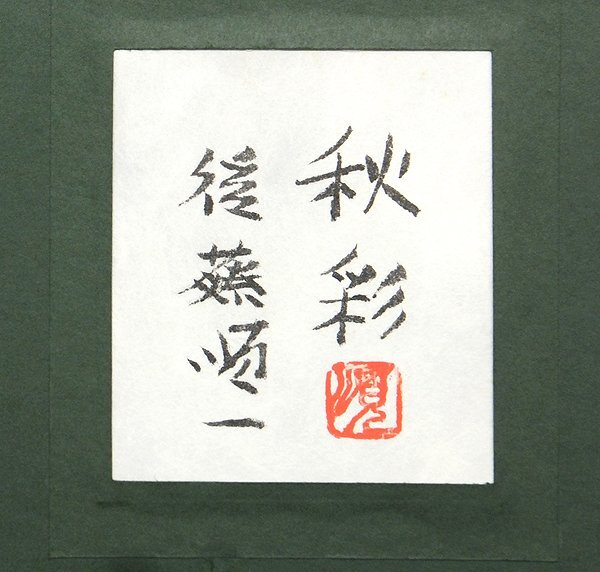 秋彩
後藤順一
順